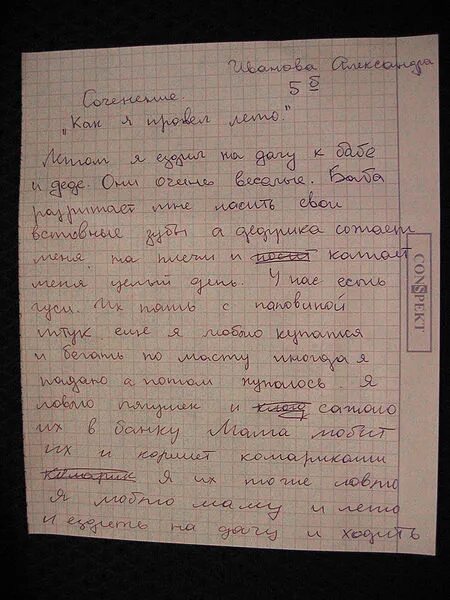 Иванова Александра
5 б
Соченение.
"Как я провел лето."
Летом я ездил на дачу к бабе
и деде. Они очень веселые. Баба
разритает мне насить свои
вставные зубы а дедушка сожает
меня на плечи и катает
меня целый день. У нас есть
гуси. Их пять с паловиной
штук еще я люблю купатся
и бегать по масту иногда я
падаю а потом купаюсь. Я
ловлю лягушек и сажаю
их в банку Мама любит
их и кормит комариками
комарик Я их тоже ловлю
Я люблю маму и лето
и ездить на дачу и ходить
CONSPEKT